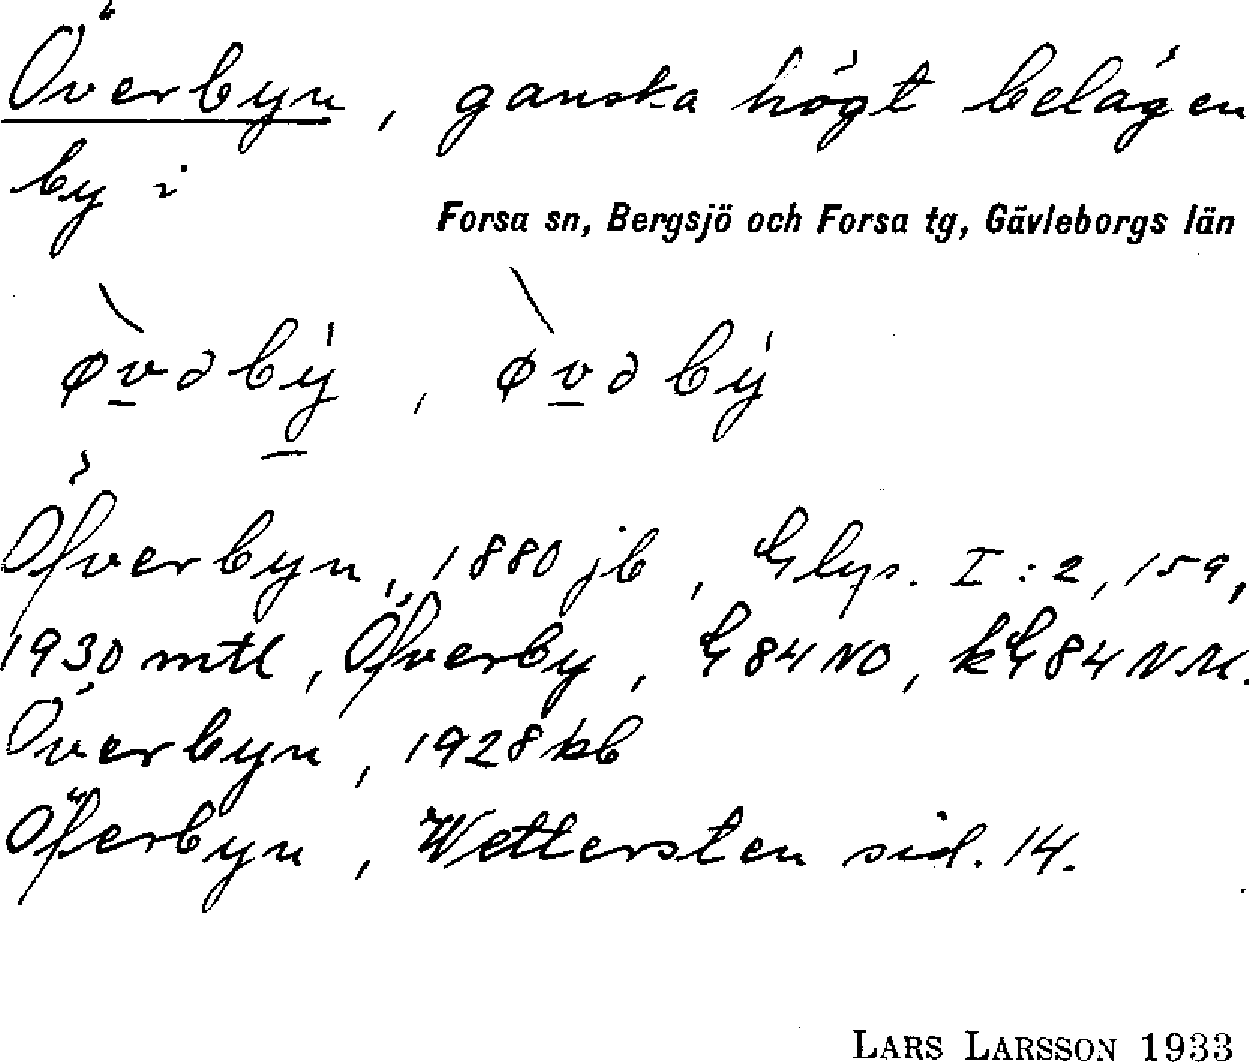 Överbyn, ganska högt belägen
by i
Forsa sn, Bergsjö och Forsa tg, Gävleborgs län
øvəby, øvəby
Öfverbyn, 1880 jb, Glys. I:2, 159,
1930 mtl, Öfverby, G 84 NO, kG 84 NM.
Överbyn, 1928 kb
Öferbyn, Wettersten sid. 14.
LARS LARSSON 1933